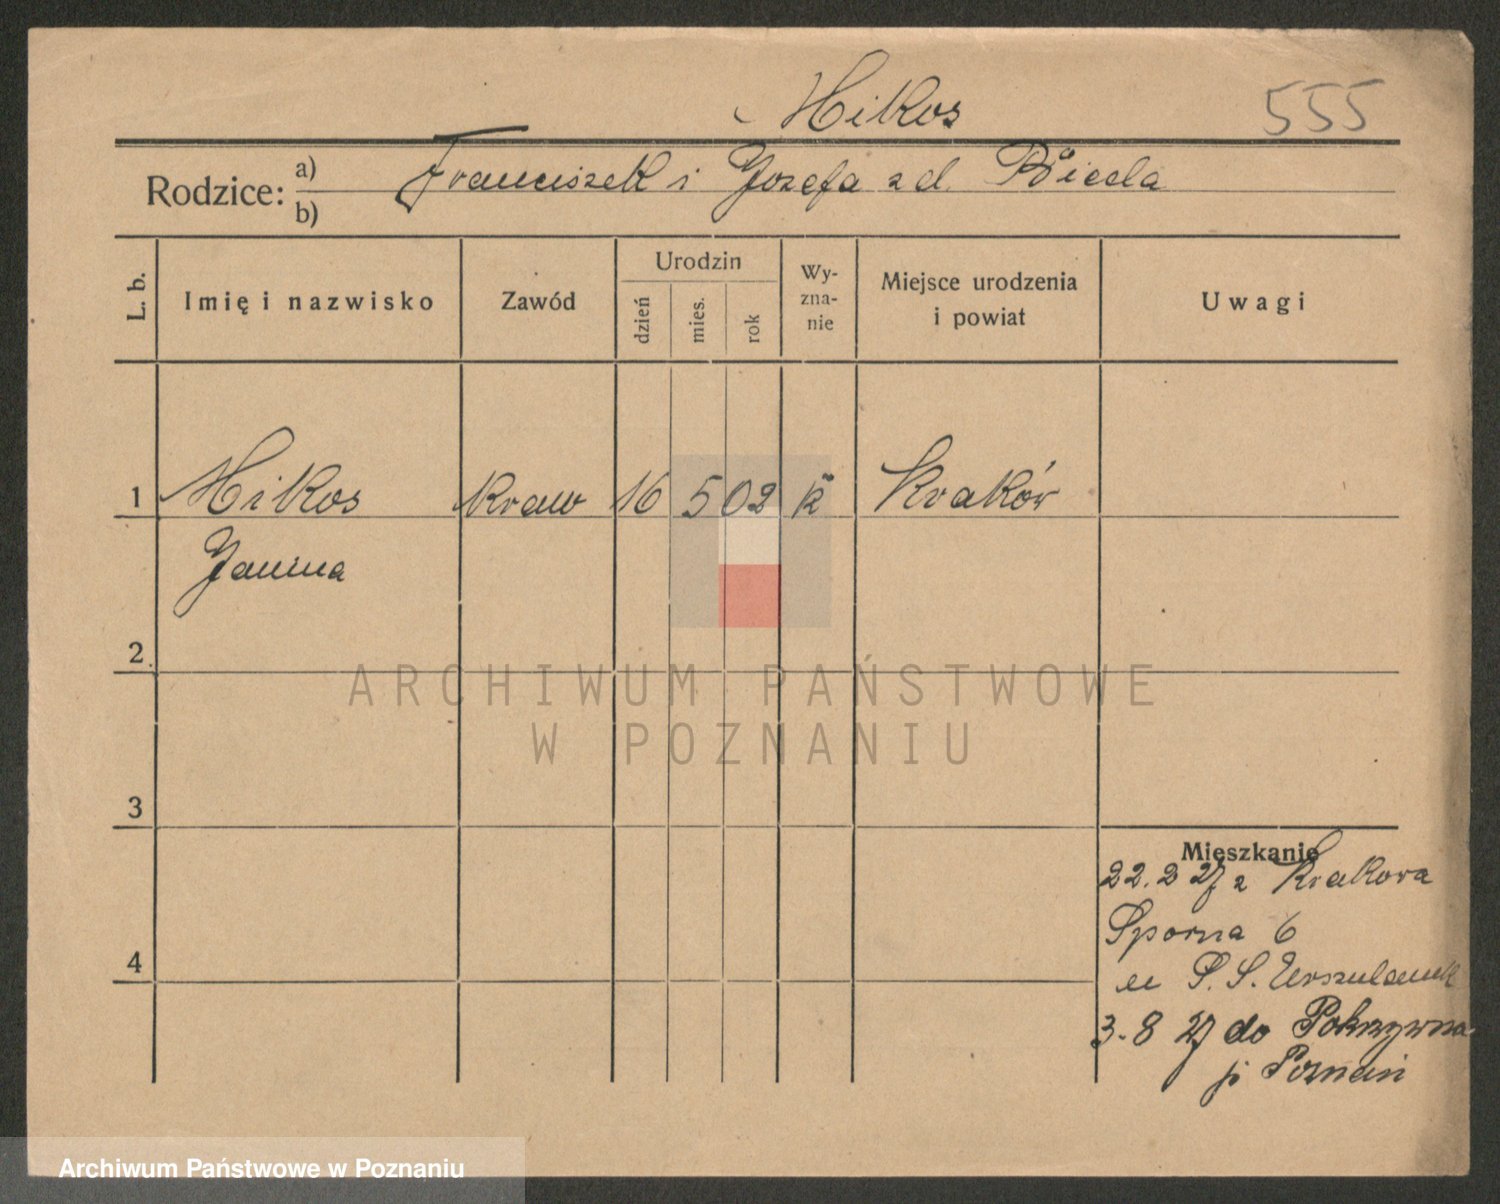 Mikos 555
Rodzice: a) Franciszek i Józefa zd.
b)
L. b. Imię i nazwisko Zawód Urodzin dzień mies. rok Wy-zna-nie Miejsce urodzenia i powiat Uwagi
1 Mikos kraw 16 5 02 k Kraków
Janina
2
ARCHIWUM PAŃSTWOWE
W POZNANIU
3
Mieszkanie
22.2 27 z Krakowa
Sporna 6
4
u P. S. Urszulanek
3.8 27 do Pokrzywna
p Poznań
Archiwum Państwowe w Poznaniu